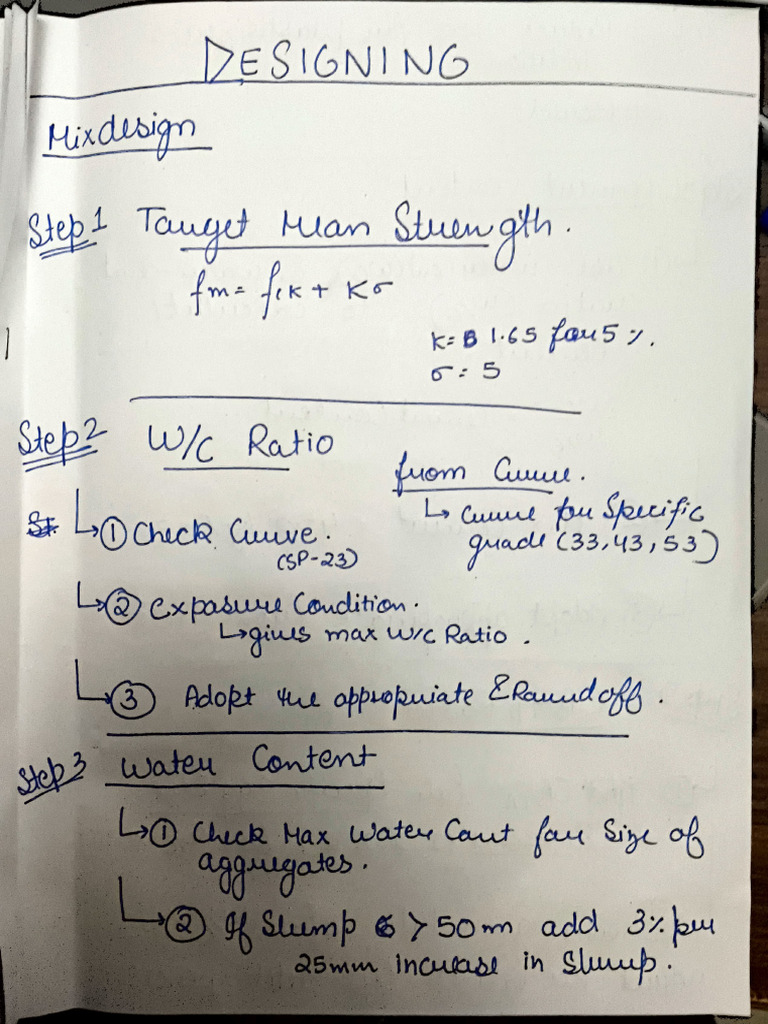 DESIGNING
Mixdesign
Step1 Target Mean Strength.
fm = fck + Kσ
K = 1.65 for 5 %.
σ = 5
Step2 W/C Ratio
from Curve.
↳ Curve for Specific
grade (33,43,53)
↳ ① Check Curve.
(SP-23)
↳ ② Exposure Condition.
↳ gives max W/C Ratio.
↳ ③ Adopt the appropriate & Round off.
Step3 Water Content
↳ ① Check Max Water Cont for Size of
aggregates.
↳ ② If Slump > 50 m add 3% per
25mm increase in Slump.